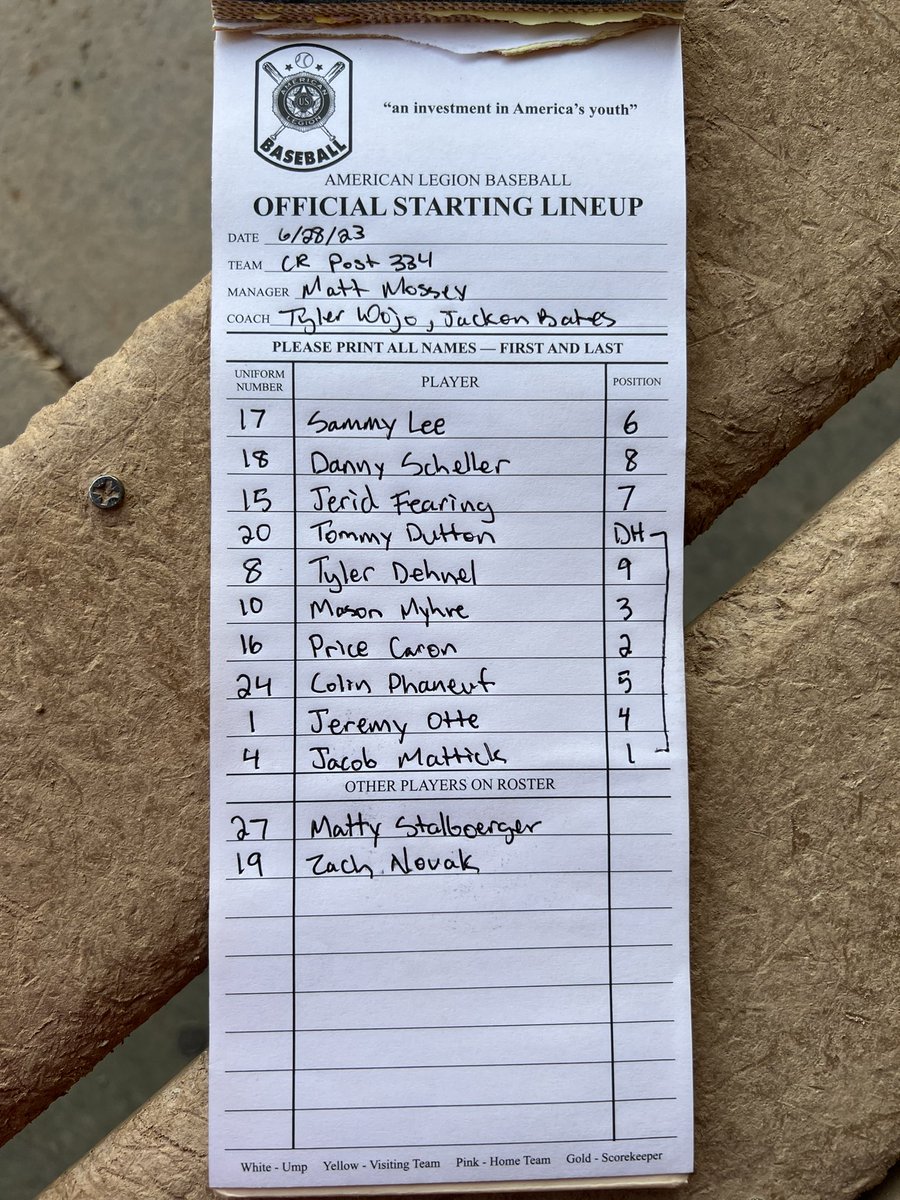 AMERICAN
US
LEGION
BASEBALL
“an investment in America’s youth”
AMERICAN LEGION BASEBALL
OFFICIAL STARTING LINEUP
DATE 6/28/23
TEAM CR Post 334
MANAGER Matt Mossey
COACH Tyler Wojo, Jackon Bates
PLEASE PRINT ALL NAMES — FIRST AND LAST
UNIFORM NUMBER PLAYER POSITION
17 Sammy Lee 6
18 Danny Scheller 8
15 Jerid Fearing 7
20 Tommy Dutton DH
8 Tyler Dehnel 9
10 Mason Myhre 3
16 Price Caron 2
24 Colin Phaneuf 5
1 Jeremy Otte 4
4 Jacob Mattick 1
OTHER PLAYERS ON ROSTER
27 Matty Stalboerger
19 Zach Novak
White - Ump Yellow - Visiting Team Pink - Home Team Gold - Scorekeeper